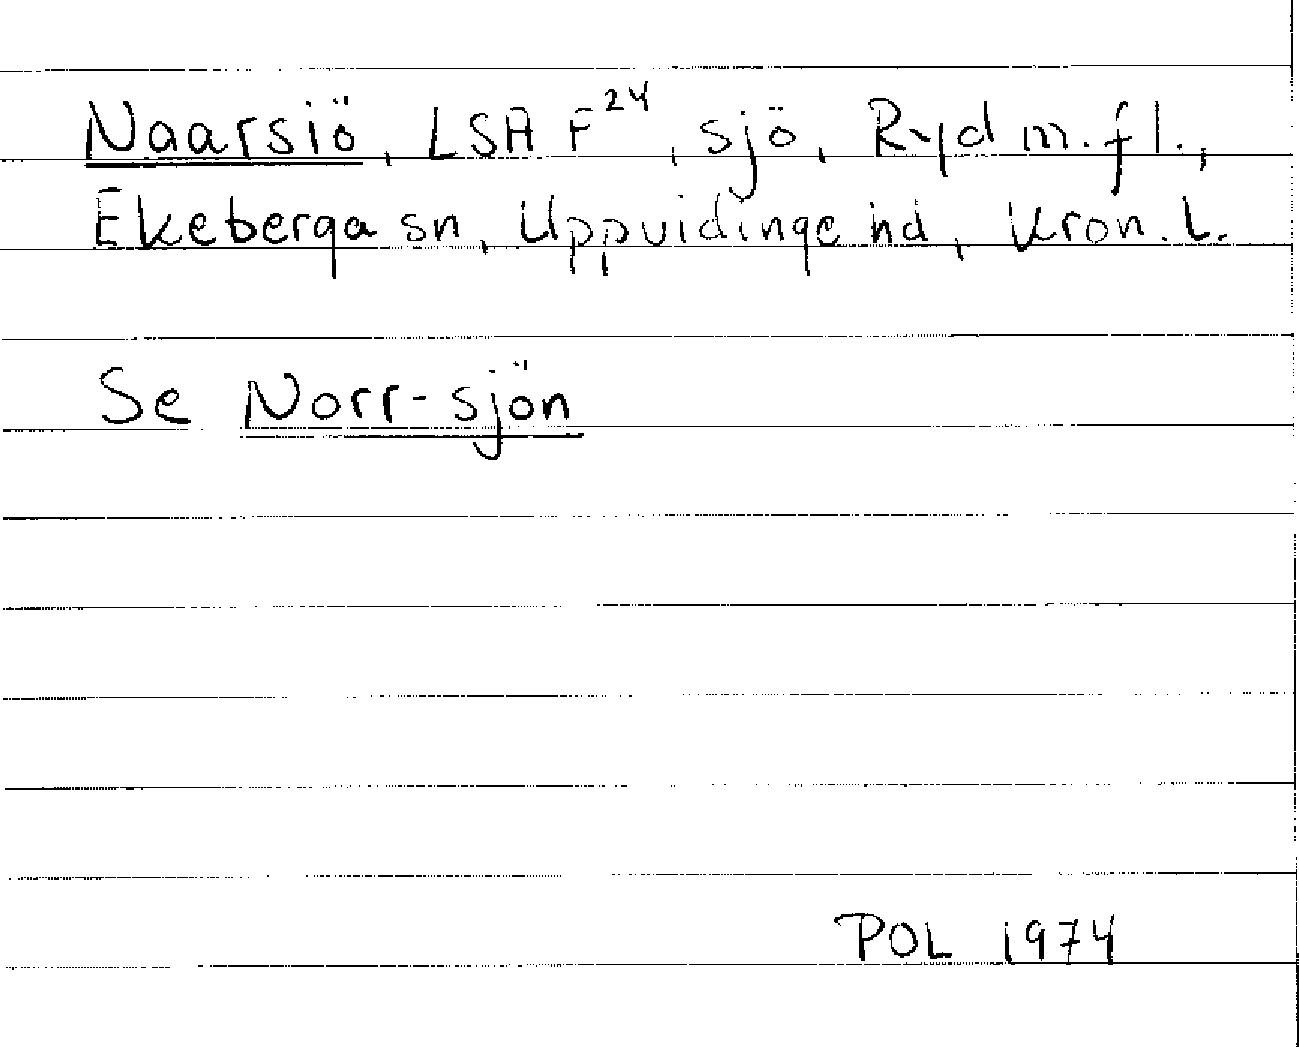 Naarsiö, LSA F24, sjö, Ryd m.fl.,
Ekeberga sn, Uppvidinge hd, Kron. L.
Se Norr-sjön
POL 1974